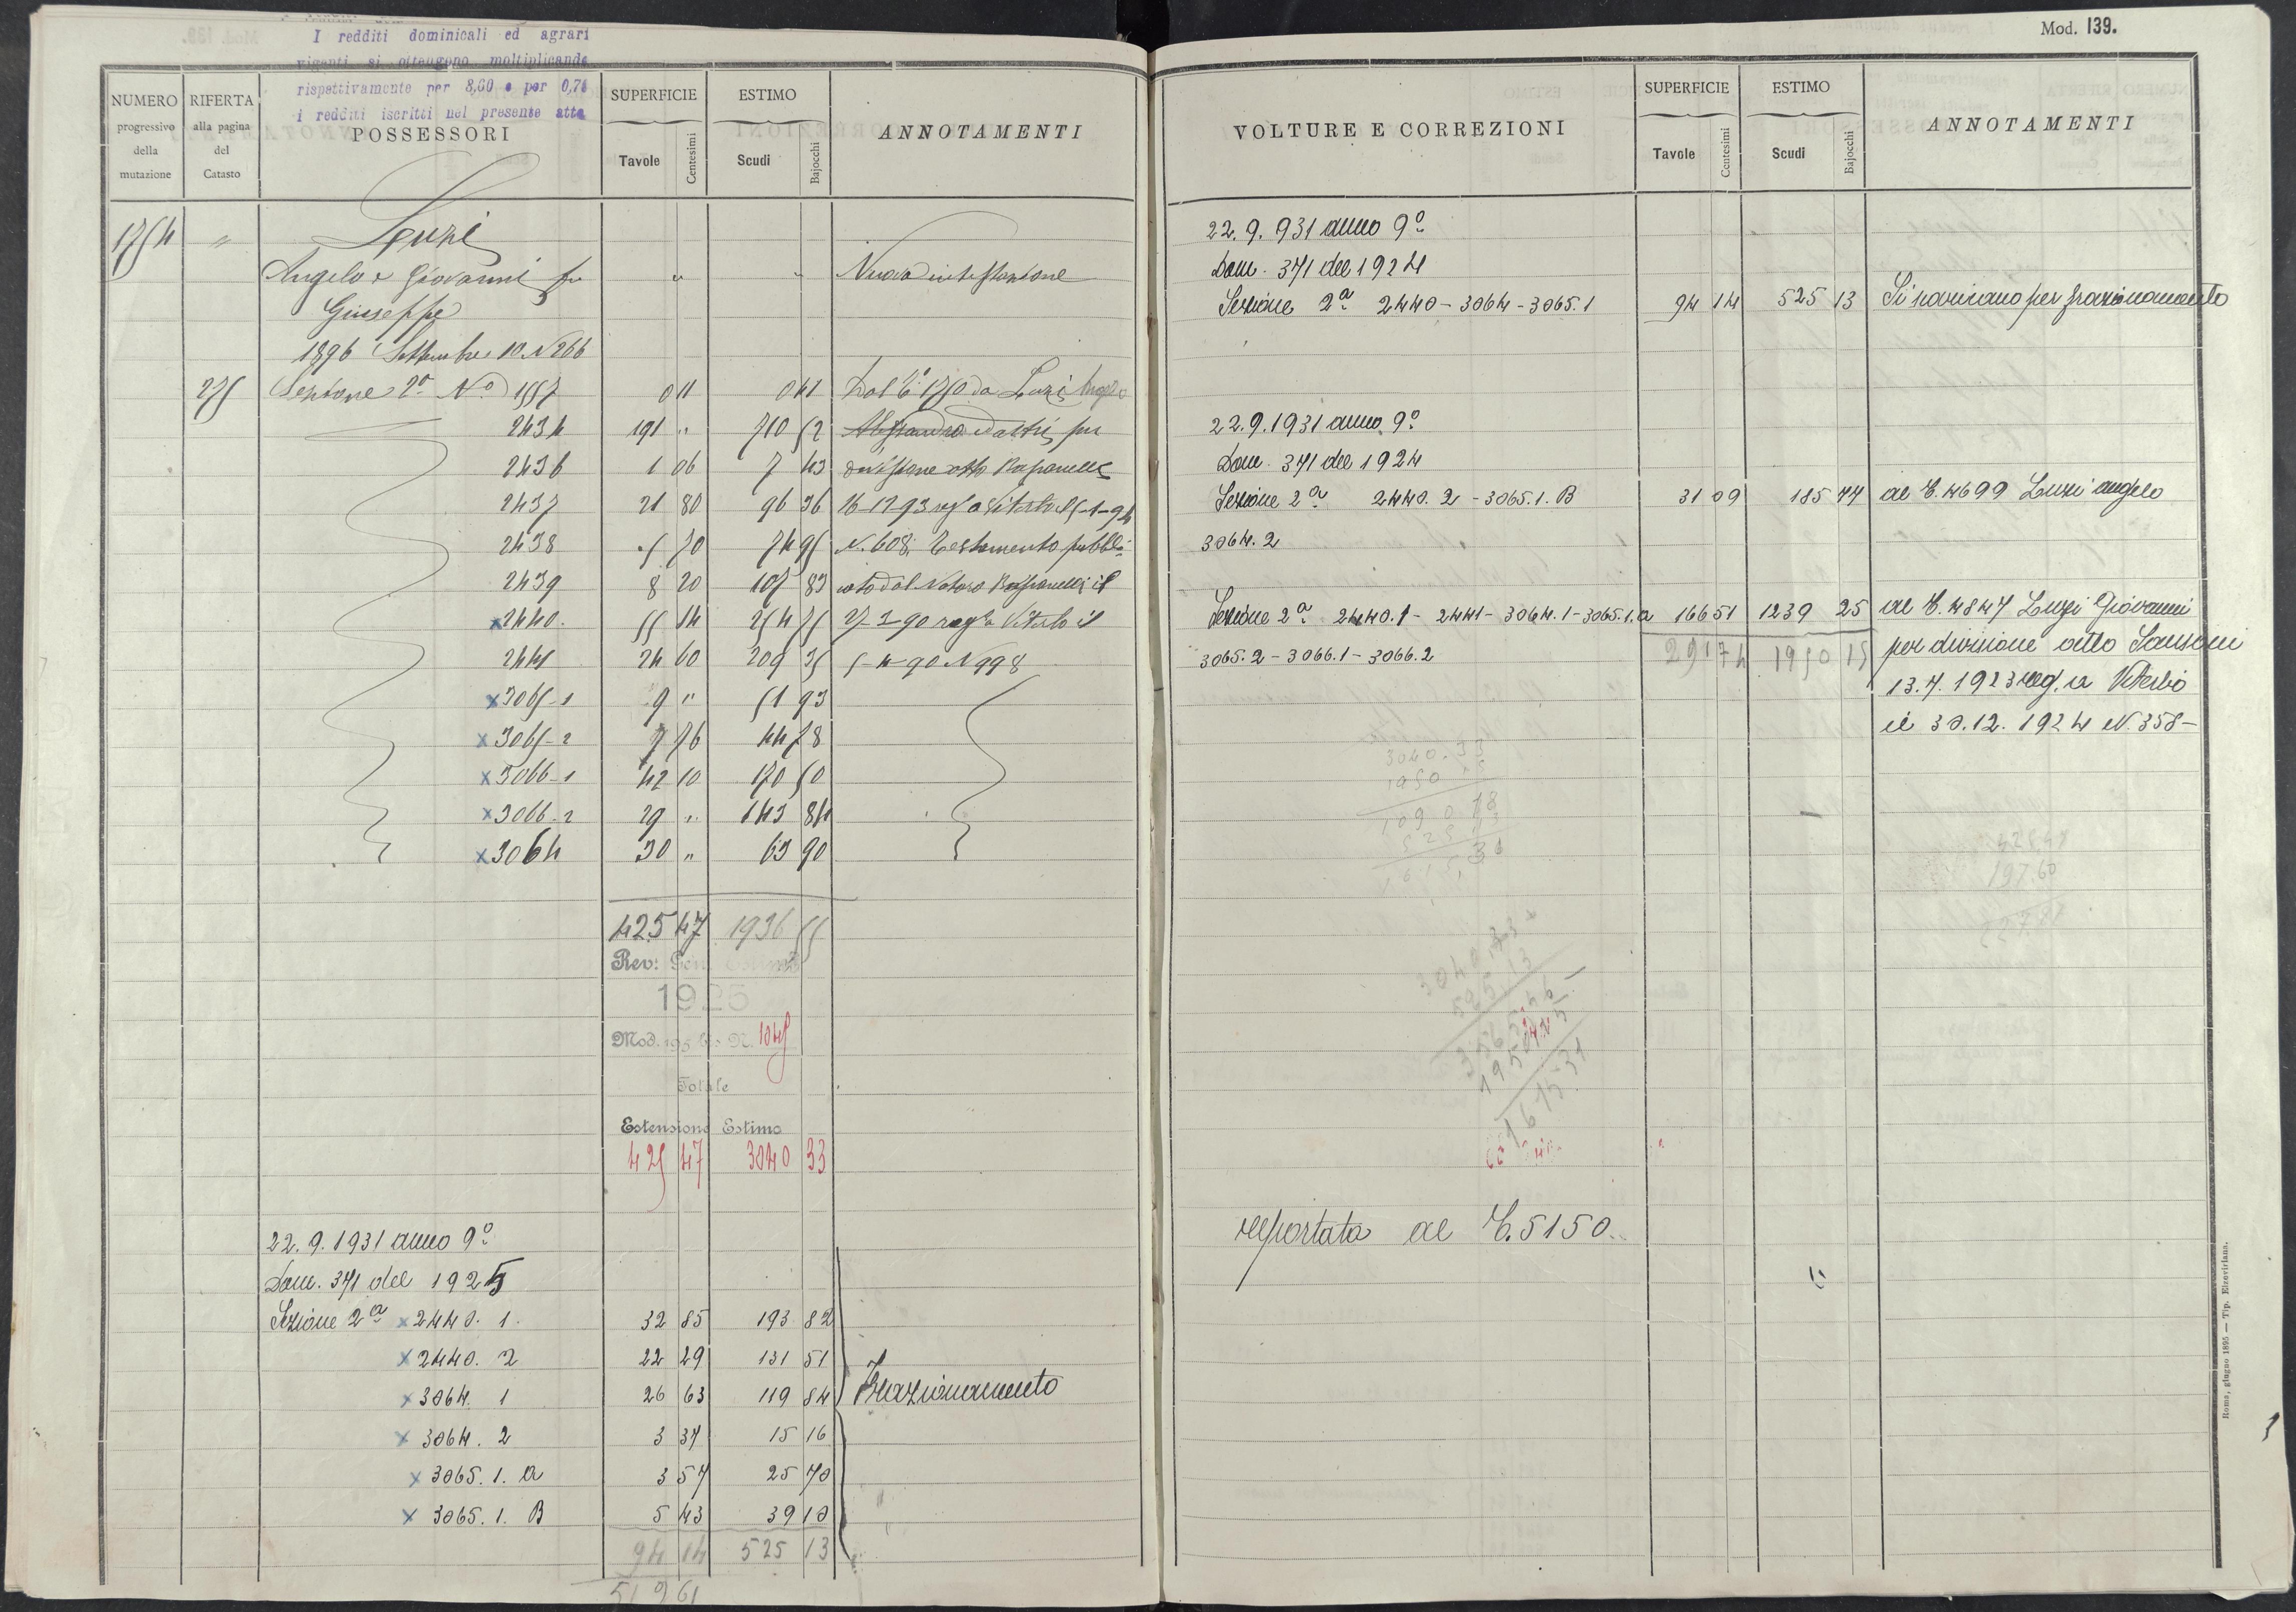 I redditi dominicali ed agrari
vigenti si ottengono moltiplicando
rispettivamente per 8,60 e per 0,74
i redditi iscritti nel presente atto
NUMERO progressivo della mutazione
RIFERTA alla pagina del Catasto
POSSESSORI
SUPERFICIE Tavole Centesimi
ESTIMO Scudi Bajocchi
ANNOTAMENTI
1754 " Luzi
Angelo e Giovanni fu " " Nuova intestazione
Giuseppe
1896 Settembre 10 N 266
275 Sezione 2a No 1557 0 11 0 41 Dal C 1750 da Luzi Angelo
2434 191 " 710 52 Alessandro ed altri per
2436 1 06 7 43 divisione atto Raspanelli
2437 21 80 96 36 16-12-93 rega Viterbo il 5-1-94
2438 5 70 74 95 N. 608; Testamento pubbli
2439 8 20 107 83 cato dal Notaro Raspanelli il
x 2440. 55 14 254 75 27-2-90 rega Viterbo il
2441 24 60 209 35 5-4-90 N 998
x 3065-1 9 " 51 93
x 3065-2 7 76 44 78
x 3066-1 42 10 170 50
x 3066-2 29 " 143 84
x 3064 30 " 63 90
425 47 1936 55
Rev: Gen.
1925
Mod. 195 bis N. 1045
Totale
Estensione Estimo
425 47 3040 33
22. 9. 1931 anno 9o
Dom. 371 del 1925
Sezione 2a x 2440. 1. 32 85 193 82
x 2440. 2 22 29 131 51
x 3064. 1 26 63 119 84 Frazionamento
x 3064. 2 3 37 15 16
x 3065. 1. a 3 57 25 70
x 3065. 1. B 5 43 39 10
94 14 525 13
519 61
Mod. 139.
VOLTURE E CORREZIONI
SUPERFICIE Tavole Centesimi
ESTIMO Scudi Bajocchi
ANNOTAMENTI
22. 9. 931 anno 9o
Dom. 371 del 1924
Sezione 2a 2440 - 3064 - 3065.1 94 14 525 13 Si scaricano per frazionamento
22.9.1931 anno 9o
Dom. 371 del 1924
Sezione 2a 2440. 2 - 3065. 1. B 31 09 185 77 al C. 4699 Luzi Angelo
3064. 2
Sezione 2a 2440.1 - 2441 - 3064.1 - 3065.1.a 166 51 1239 25 al C. 4847 Luzi Giovanni
3065. 2 - 3066. 1 - 3066. 2 291 74 1950 15 per divisione atto Sansoni
13. 7. 1923 reg. a Viterbo
il 30. 12. 1924 N. 358 -
3040. 33
1950 15
1090 18
525 13
1615, 31
3040 33
525 13
197.60
riportata al C. 5150.
Roma, giugno 1895 — Tip. Elzeviriana.